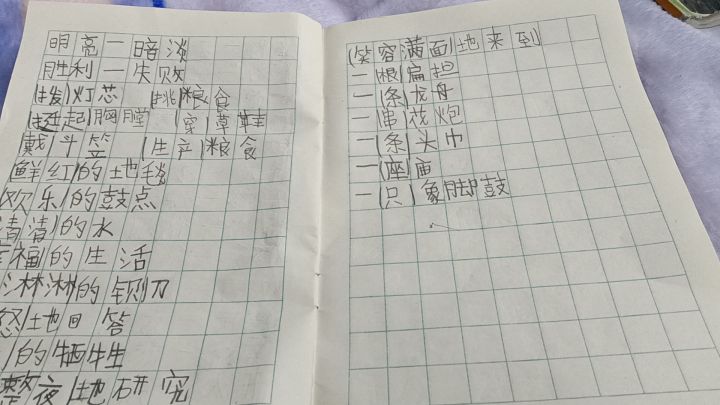 明亮一暗淡
胜利一失败
(拨)灯芯 (挑)粮食
(挺)起胸膛 (穿)草鞋
(戴)斗笠 (生产)粮食
鲜红的地毯
欢乐的鼓点
清清的水
福的生活
淋淋的铡刀
怒地回答
的牺牲
整夜地研究
(笑容满面)地来到
一(根)扁担
一(条)龙舟
一(串)花炮
一(条)头巾
一(座)庙
一(只)象脚鼓